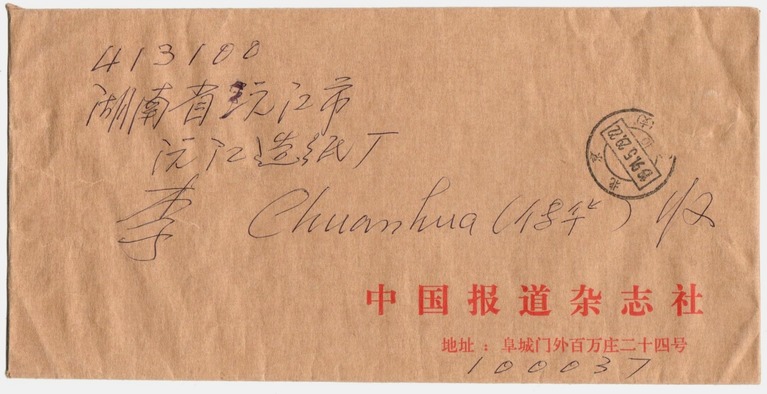 413100
湖南省沅江市
沅江造纸厂
李 Chuanhua (传华) 收
北京
1991.5.29.22
中国报道杂志社
地址：阜城门外百万庄二十四号
100037